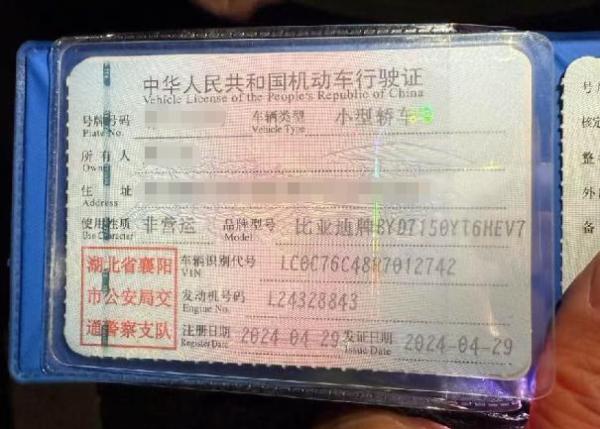 中华人民共和国机动车行驶证
Vehicle License of the People's Republic of China
号牌号码 Plate No. 车辆类型 Vehicle Type 小型轿车
所有人 Owner
住址 Address
使用性质 Use Character 非营运 品牌型号 Model 比亚迪牌BYD7150YT6HEV7
湖北省襄阳
市公安局交
通警察支队
车辆识别代号 VIN LC0C76C48R7012742
发动机号码 Engine No. L24328843
注册日期 Register Date 2024-04-29 发证日期 Issue Date 2024-04-29
号
核定
整
外
备